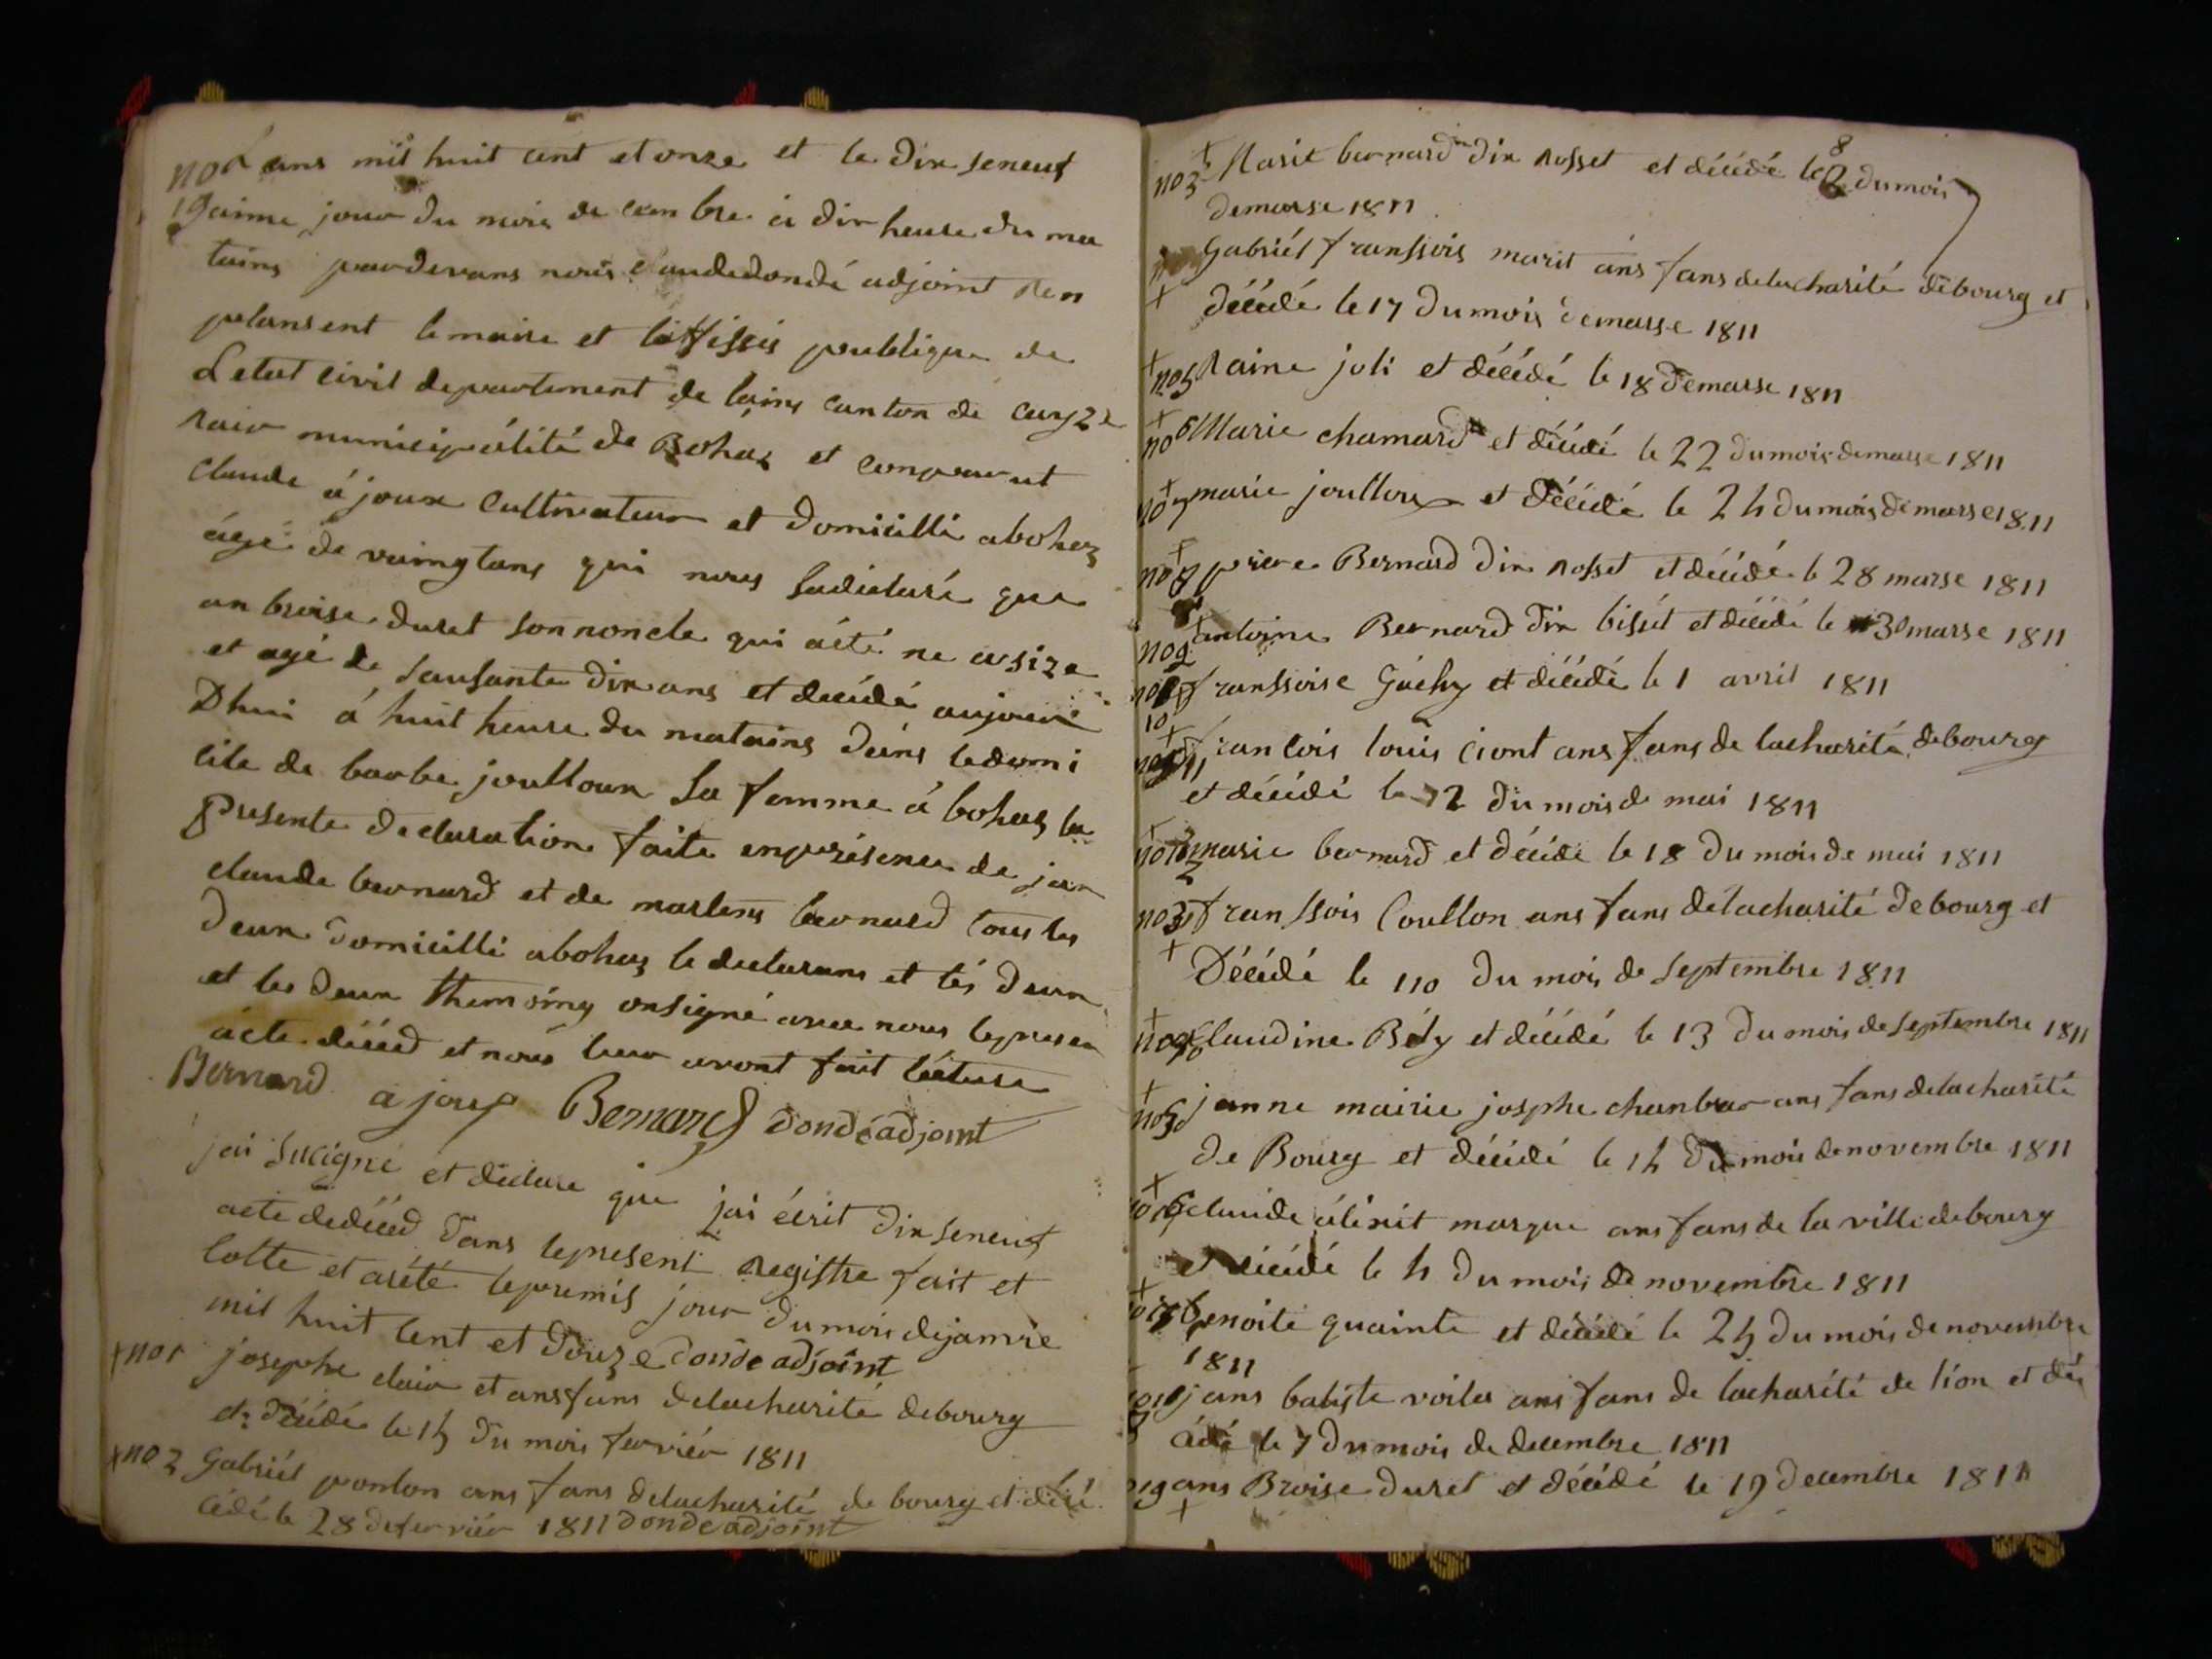 no L'ans mil huit cent et onze et le dix seneuf
19 aime jour du mois de cembre a dix heure du ma
tains pardevans nous claudedondé adjoint ren
plansent le maire et lóffissis publique de
Letat civil departement de lains canton de ceyze
raix municipálité de Bohas et comparut
claude ájoux cultivateur et domicillé abohas
ágé de vaingtans qui nous ladéclaré que
anbroise duret sonnoncle qui áété ne asize
et agé de sausante dix ans et décédé aujour
Dhui á huit heure du matains dans ledomi
cile de barbe joulloux sa famme á bohas la
presente declaration faite enprésence de jan
claude bernard et de marlens bernard tous les
deux domicillé abohas le declarans et lés deux
et les deux themoing onsigné avec nous lepresen
ácte décéd et nous leur avont fait lécture
Bernard ajoux Bernard dondéadjoint
jai Sucigné et déclare que jai écrit dix seneuf
acte dedécéd dans lepresent registre fait et
cotte et arété lepremié jour dumois dejanvié
mil huit cent et douze donde adjoint
+ no 1 josephe clair et ansfans delacharité debourg
et décédé le 14 du mois ferviér 1811
+ no 2 Gabriél ponlon ans fans delacharité de bourg et décé
cédé le 28 defervier 1811 donde adjoint
+ no 3 Marie bernard dix rosset et décédé le 8 dumois
demarse 1811
+ Gabriél franssois marit áns fans delacharité debourg et
décédé le 17 dumois demarse 1811
+ no 5 Raine joli et décédé le 18 demarse 1811
+ no 6 Marie chamard et décédé le 22 dumois demarse 1811
+ no 7 marie joulloux et décédé le 24 dumois de marse 1811
+ no 8 piere Bernard dix rosset et décédé le 28 marse 1811
+ no 9 antoine Bernard dix bissét et décédé le 30 marse 1811
no 10 franssoise Gáchy et décédé le 1 avril 1811
+ no 11 francois louis ciont ans fans de lacharité debourg
et décédé le 12 du mois de mai 1811
+ no 12 marie bernard et décédé le 18 du mois de mai 1811
no 13 franssois Coullon ans fans delacharité debourg et
+ Décédé le 110 du mois de septembre 1811
+ no Claudine Bély et décédé le 13 du mois de septembre 1811
+ no 5 janne mairie josphe chanbar ans fans delacharité
de Bourg et décédé le 14 du mois denovembre 1811
+ no 16 claude álinit marque ans fans de la ville debourg
et décédé le 4 du mois de novembre 1811
+ no 17 benoite quainte et décédé le 24 du mois denovembre
1811
jans batiste voiler ans fans de lacharité de lion et dé
cédé le 7 dumois de decembre 1811
o 19 ans Broise duret et décédé le 19 decembre 1811
+